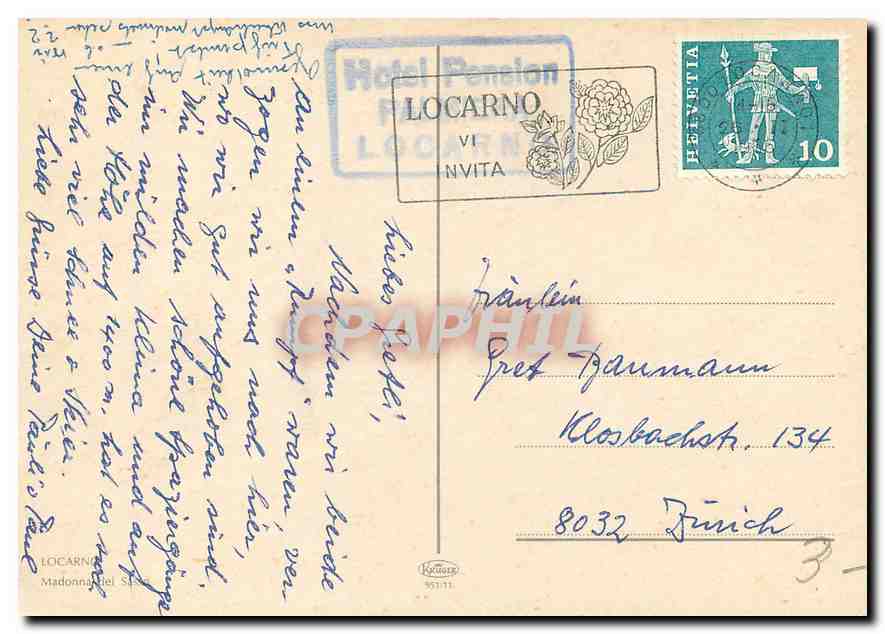 Liebes Gretli,
Nachdem wir beide
an einem "Rumpf" waren, ver-
zogen wir uns nach hier,
wo wir gut aufgehoben sind.
Wir machen schöne Spaziergänge
im milden Klima und auf
der Höhe auf 1400 m, hat es noch
sehr viel Schnee & Skier.
Liebe Grüsse Deine Pauli & Paul
Hotel Pension
LOCARNO
LOCARNO
VI
INVITA
HELVETIA
10
Fräulein
Gret Baumann
Klosbachstr. 134
8032 Zürich
3-
LOCARNO
Madonna del Sasso
KRÜGER
951/11
CPAPHIL